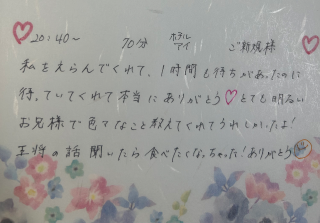 20:40~ 70分 ホテル アイ ご新規様
私をえらんでくれて、1時間も待ちがあったのに
待っていてくれて本当にありがとう♡とても明るい
お兄様で色々なこと教えてくれてうれしかったよ!
王将の話聞いたら食べたくなっちゃった!ありがとう